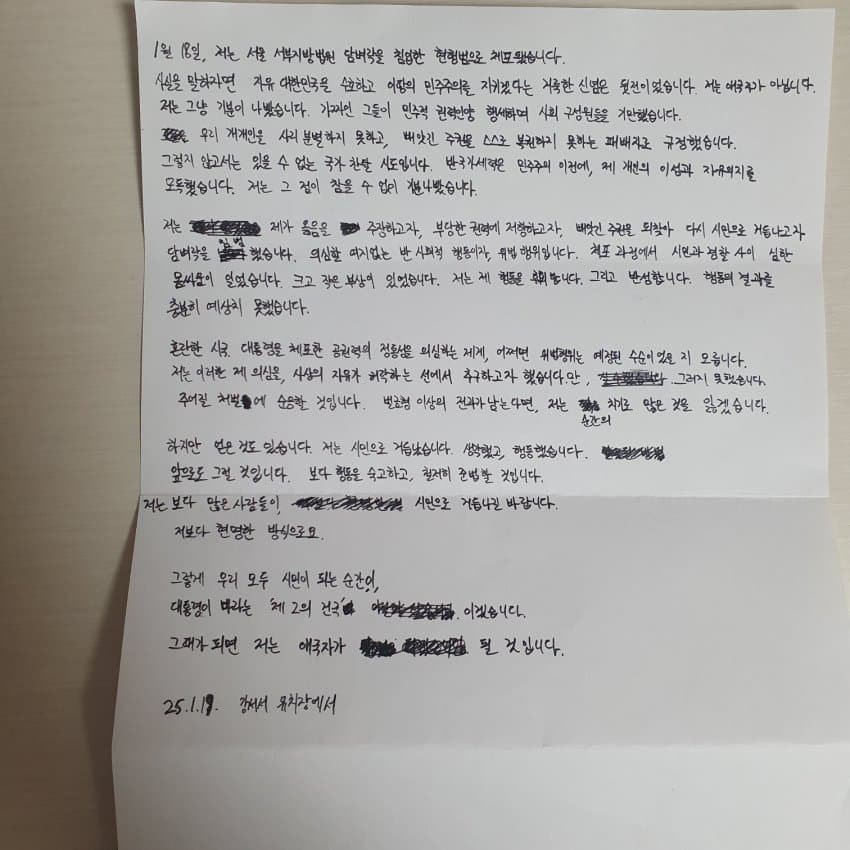 1월 18일, 저는 서울 서부지방법원 담벼락을 침입한 현행범으로 체포됐습니다.
사실을 말하자면 자유 대한민국을 수호하고 이땅의 민주주의를 지키겠다는 거룩한 신념은 뒷전이었습니다. 저는 애국자가 아닙니다.
저는 그냥 기분이 나빴습니다. 가짜인 그들이 민주적 권력인양 행세하며 사회 구성원들을 기만했습니다.
우리 개개인을 사리 분별하지 못하고, 빼앗긴 주권을 스스로 복권하지 못하는 패배자로 규정했습니다.
그렇지 않고서는 있을 수 없는 국가 찬탈 시도입니다. 반국가세력은 민주주의 이전에, 제 개인의 이성과 자유의지를
모독했습니다. 저는 그 점이 참을 수 없이 기분나빴습니다.
저는 제가 옳음을 주장하고자, 부당한 권력에 저항하고자, 빼앗긴 주권을 되찾아 다시 시민으로 거듭나고자
담벼락을 월범 했습니다. 의심할 여지없는 반 사회적 행동이자, 위법 행위입니다. 체포 과정에서 시민과 경찰 사이 심한
몸싸움이 일었습니다. 크고 작은 부상이 있었습니다. 저는 제 행동을 후회합니다. 그리고 반성합니다. 행동의 결과를
충분히 예상치 못했습니다.
혼란한 시국. 대통령을 체포한 공권력의 정통성을 의심하는 제게, 어쩌면 위법행위는 예정된 수순이었을 지 모릅니다.
저는 이러한 제 의심을, 사상의 자유가 허락하는 선에서 추구하고자 했습니다만, 그러지 못했습니다.
주어질 처벌에 순응할 것입니다. 벌금형 이상의 전과가 남는다면, 저는 순간의 치기로 많은 것을 잃겠습니다.
하지만 얻은 것도 있습니다. 저는 시민으로 거듭났습니다. 생각했고, 행동했습니다.
앞으로도 그럴 것입니다. 보다 행동을 숙고하고, 철저히 준법할 것입니다.
저는 보다 많은 사람들이, 시민으로 거듭나길 바랍니다.
저보다 현명한 방식으로요.
그렇게 우리 모두 시민이 되는 순간이,
대통령이 바라는 '제 2의 건국' 이겠습니다.
그때가 되면 저는 애국자가 될 것입니다.
25.1.19. 강서서 유치장에서